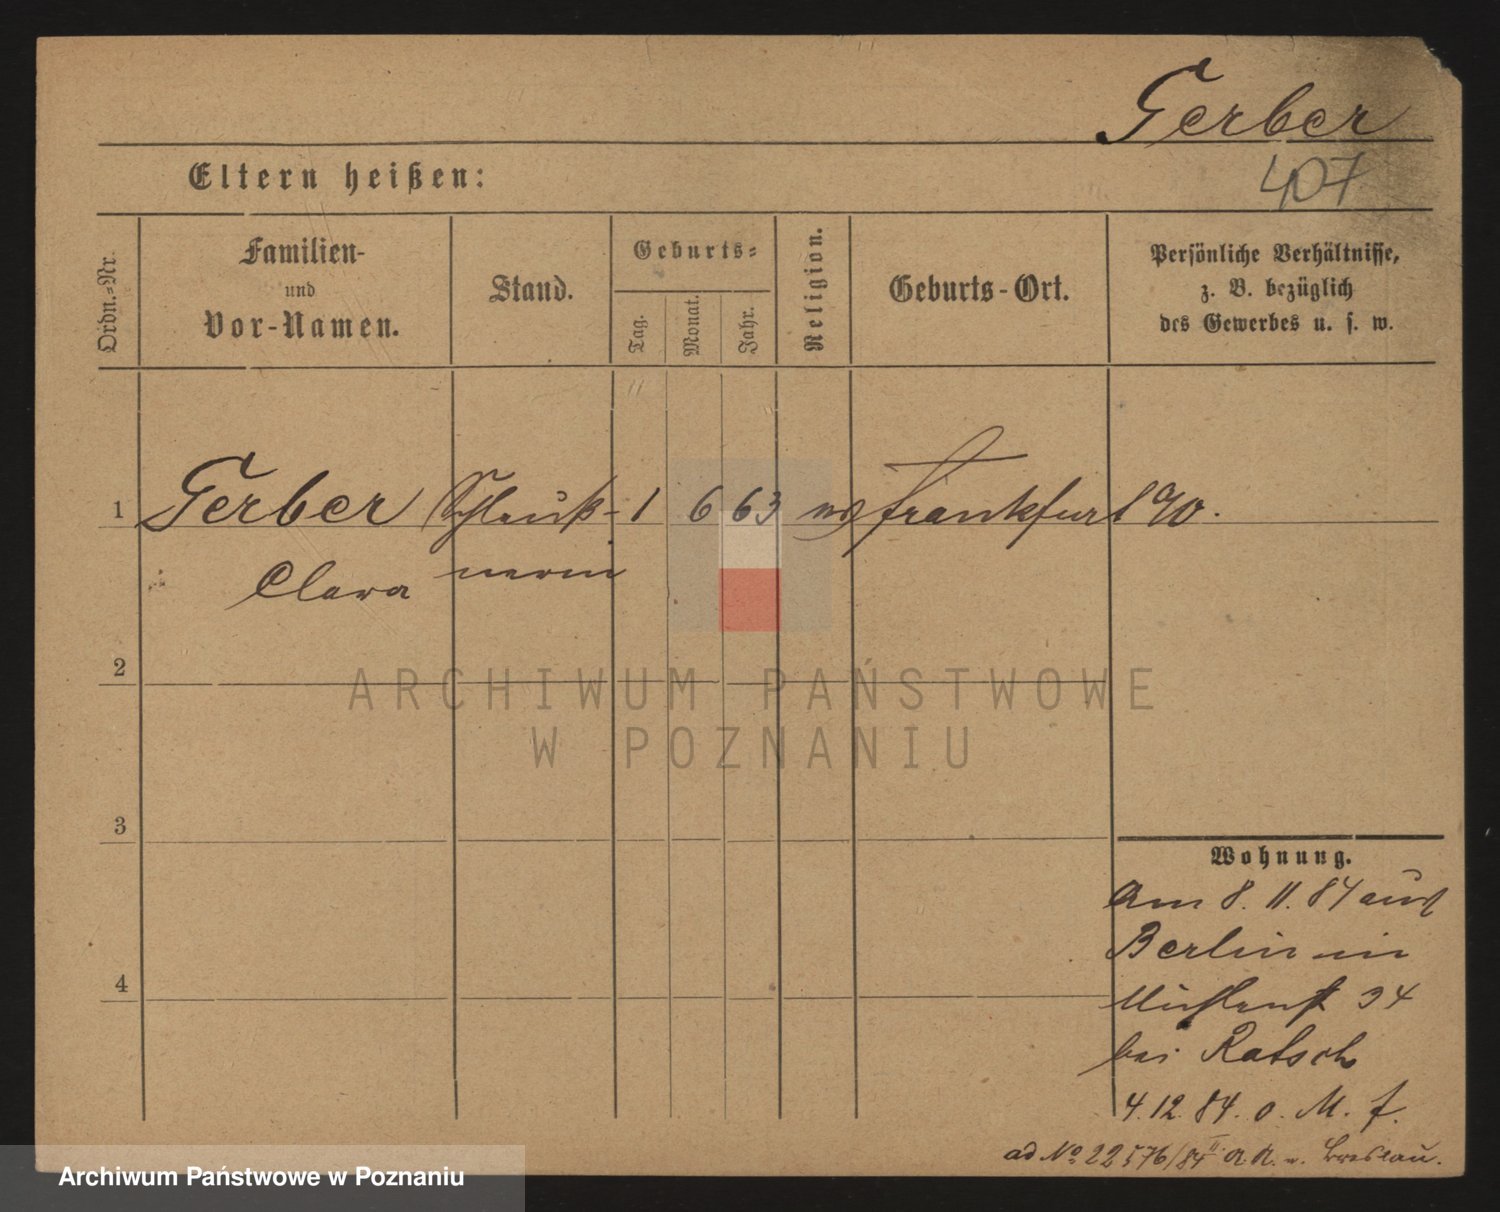 Gerber
407
Eltern heißen:
Ordn.-Nr.
Familien-
und
Vor-Namen.
Stand.
Geburts-
Tag.
Monat.
Jahr.
Religion.
Geburts-Ort.
Persönliche Verhältnisse,
z. B. bezüglich
des Gewerbes u. s. w.
1 Gerber 1 6 63 Frankfurt a/O.
Clara
2
3
4
Wohnung.
Am 8. 11. 84 aus
Berlin in
34
bei Ratsch
4.12.84. o. M. f.
ad No 22576/84 II
ARCHIWUM PAŃSTWOWE
W POZNANIU
Archiwum Państwowe w Poznaniu